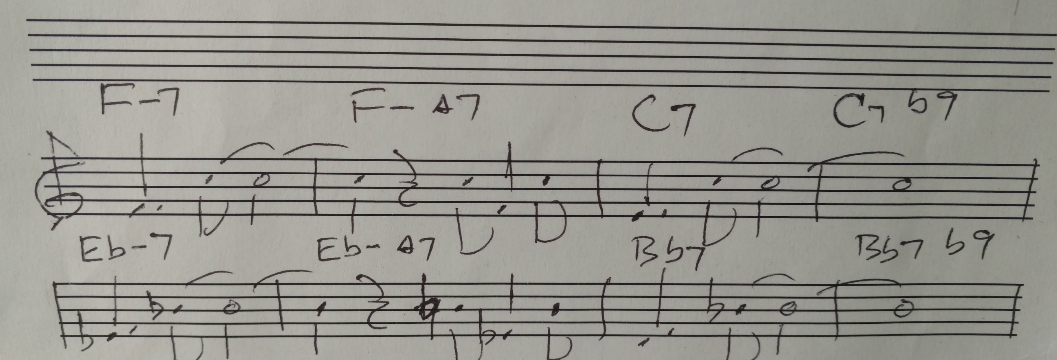 F-7 F- Δ7 C7 C7 b9
Eb-7 Eb- Δ7 Bb7 Bb7 b9